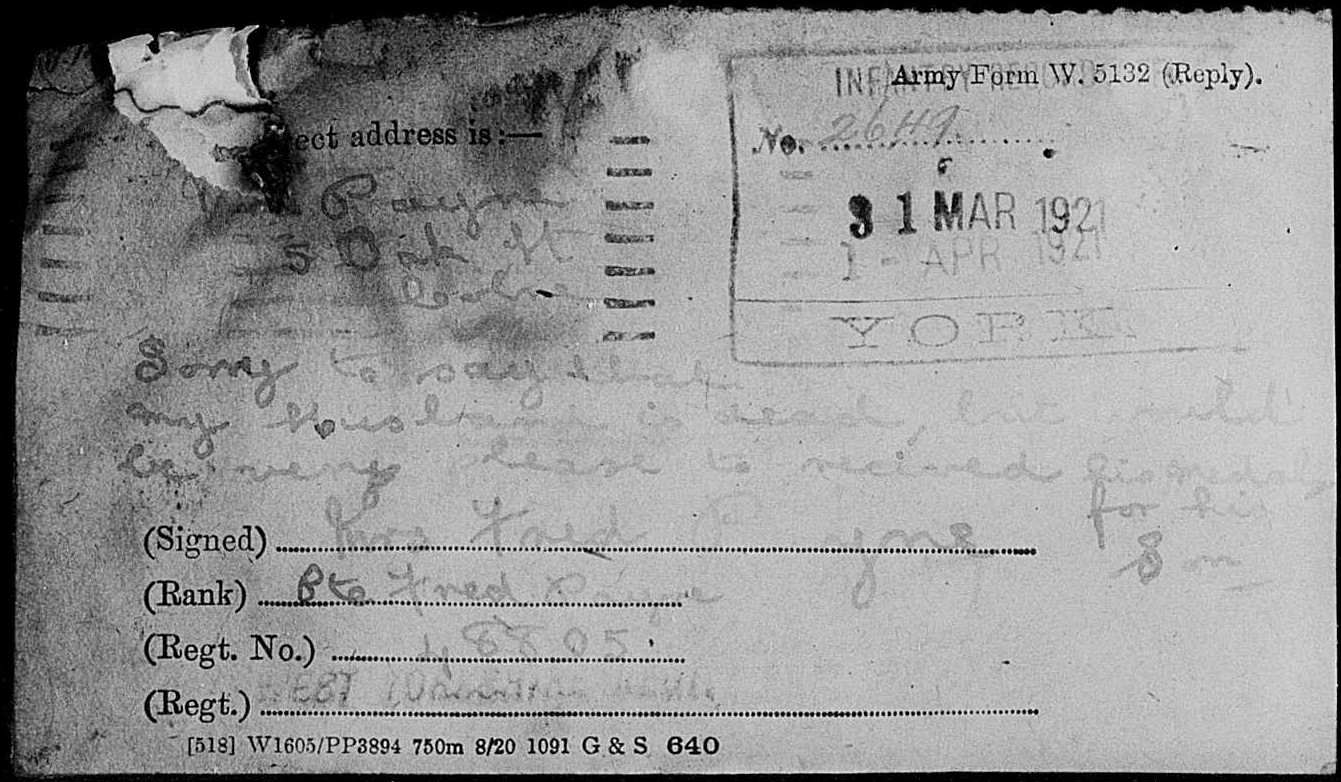 Army Form W. 5132 (Reply).
No. 2649
ect address is :—
31 MAR 1921
Payne
1 - APR 1921
5 St
YORK
Sorry to say that
my Husband is dead, but would
be very please to recieved his medals
for his
Son
(Signed) Mrs Fred Payne
(Rank) Pte Fred Payne
(Regt. No.) 48805
(Regt.) WEST
[518] W1605/PP3894 750m 8/20 1091 G & S 640